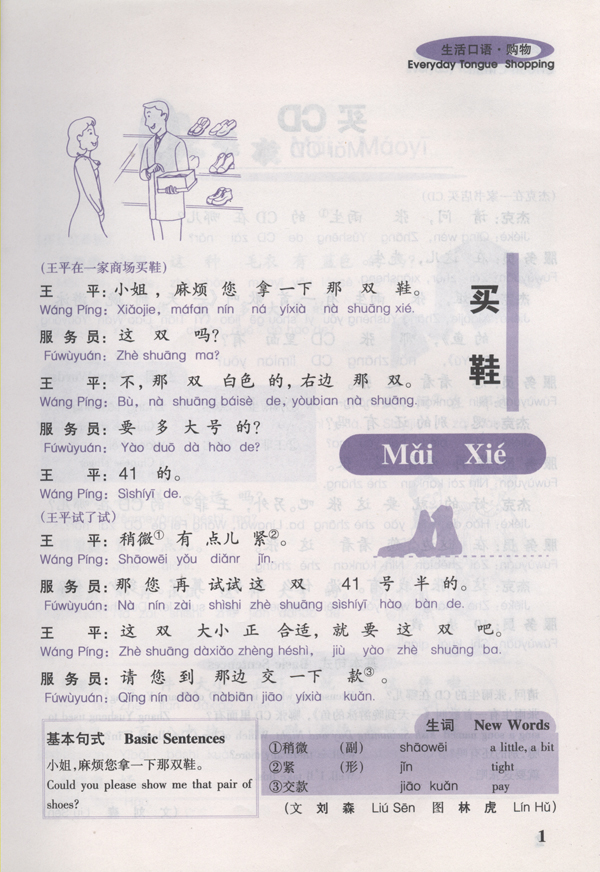 生活口语·购物
Everyday Tongue Shopping
买鞋
Mǎi Xié
(王平在一家商场买鞋)
王 平: 小姐, 麻烦 您 拿 一下 那 双 鞋。
Wáng Píng: Xiǎojie, máfan nín ná yíxià nà shuāng xié.
服务员: 这 双 吗?
Fúwùyuán: Zhè shuāng ma?
王 平: 不, 那 双 白色 的, 右边 那 双。
Wáng Píng: Bù, nà shuāng báisè de, yòubian nà shuāng.
服务员: 要 多 大 号 的?
Fúwùyuán: Yào duō dà hào de?
王 平: 41 的。
Wáng Píng: Sìshíyī de.
(王平试了试)
王 平: 稍微① 有 点儿 紧②。
Wáng Píng: Shāowēi yǒu diǎnr jǐn.
服务员: 那 您 再 试试 这 双 41 号 半 的。
Fúwùyuán: Nà nín zài shìshi zhè shuāng sìshíyī hào bàn de.
王 平: 这 双 大小 正 合适, 就 要 这 双 吧。
Wáng Píng: Zhè shuāng dàxiǎo zhèng héshì, jiù yào zhè shuāng ba.
服务员: 请 您 到 那边 交 一下 款③。
Fúwùyuán: Qǐng nín dào nàbiān jiāo yíxià kuǎn.
基本句式 Basic Sentences
小姐,麻烦您拿一下那双鞋。
Could you please show me that pair of
shoes?
生词 New Words
①稍微 (副) shāowēi a little, a bit
②紧 (形) jǐn tight
③交款 jiāo kuǎn pay
(文 刘 森 Liú Sēn 图 林 虎 Lín Hǔ)
1